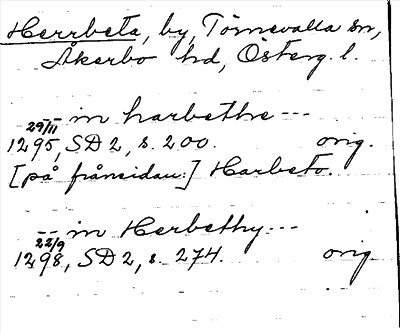 Herrbeta, by, Törnevalla sn,
Åkerbo hd, Österg. l.
-- in harbethe ---
29/11
1295, SD 2, s. 200. orig.
[på frånsidan:] Harbeto.
-- in Herbethy ---
22/9
1298, SD 2, s. 274. orig.